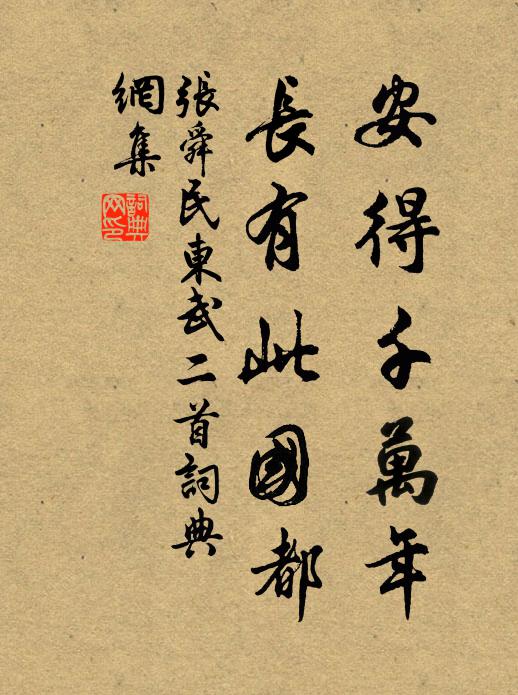 安得千萬年
長有此國都
張舜民東武二首詞典
網集
詞典
网印